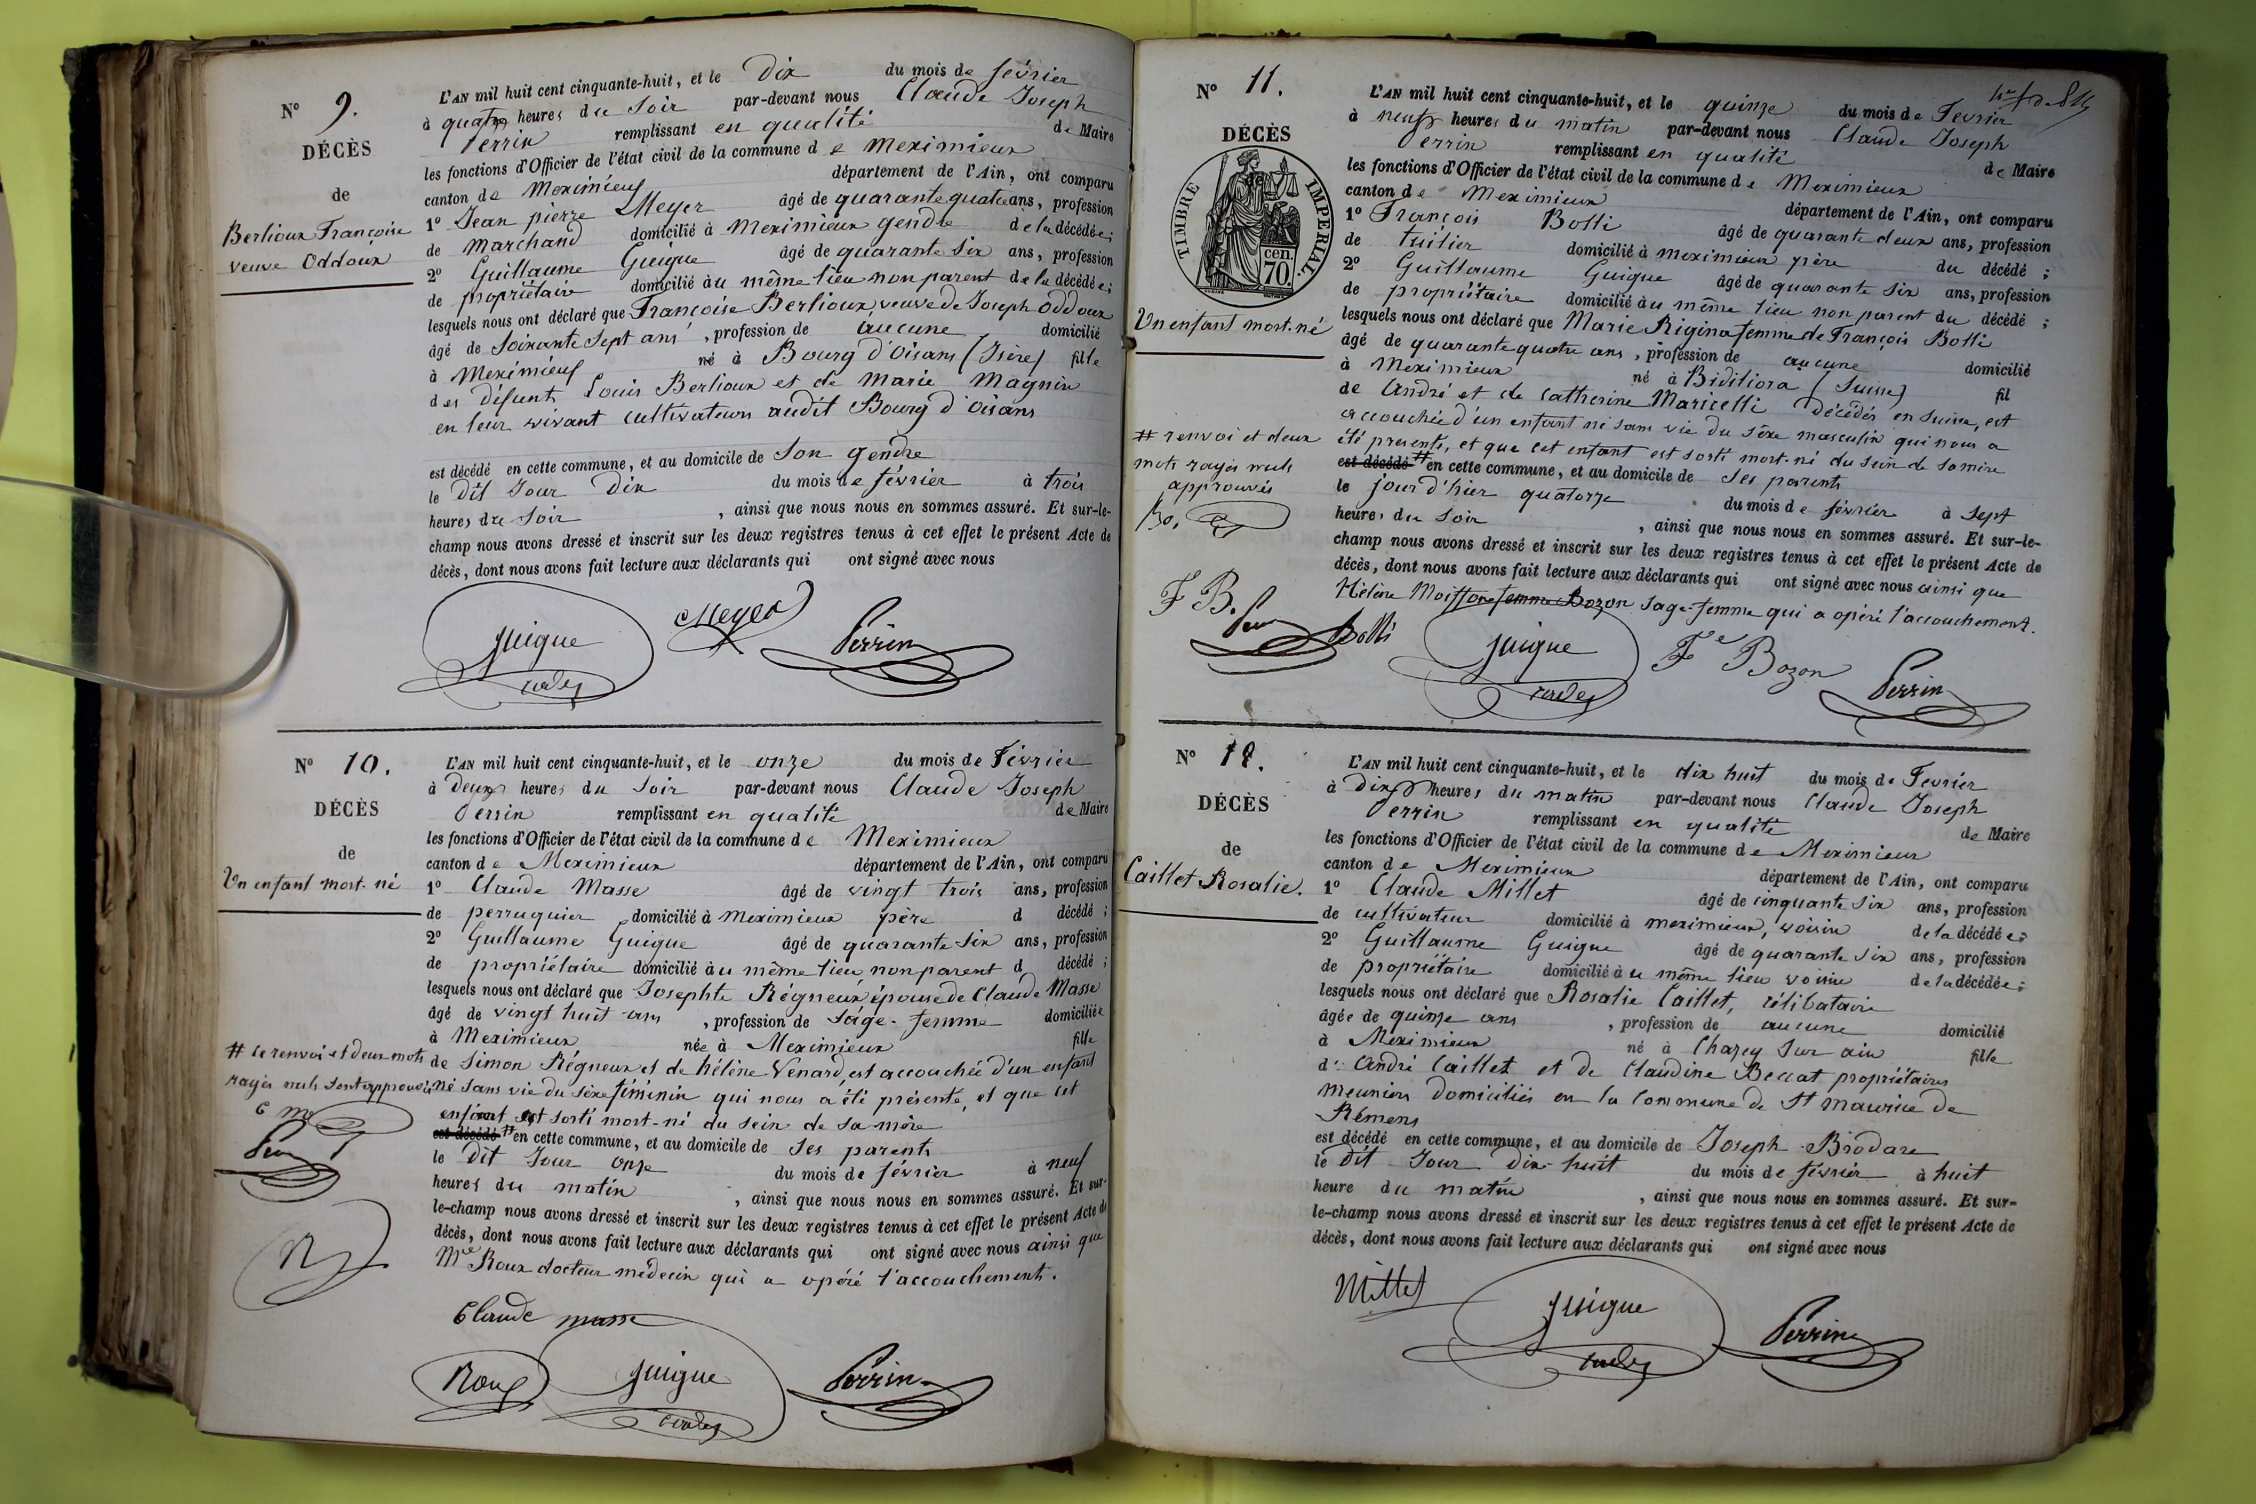 N° 9.
DÉCÈS
de
Berlioux Françoise
veuve Oddoux
L'AN mil huit cent cinquante-huit, et le dix du mois de février
à quatre heures du soir par-devant nous Claude Joseph
Perrin remplissant en qualité de Maire
les fonctions d'Officier de l'état civil de la commune de Meximieux
canton de Meximieux département de l'Ain, ont comparu
1° Jean pierre Meyer âgé de quarante quatre ans, profession
de marchand domicilié à Meximieux gendre de la décédée;
2° Guillaume Guigue âgé de quarante six ans, profession
de propriétaire domicilié au même lieu non parent de la décédée;
lesquels nous ont déclaré que Françoise Berlioux veuve de Joseph Oddoux
âgé de soixante sept ans, profession de aucune domicilié
à Meximieux né à Bourg d'Oisans (Isère) fille
des défunts Louis Berlioux et de Marie Magnin
en leur vivant cultivateurs audit Bourg d'Oisans
est décédé en cette commune, et au domicile de son gendre
le dit jour dix du mois de février à trois
heures du soir, ainsi que nous nous en sommes assuré. Et sur-le-
champ nous avons dressé et inscrit sur les deux registres tenus à cet effet le présent Acte de
décès, dont nous avons fait lecture aux déclarants qui ont signé avec nous
Guigue Meyer Perrin
N° 10.
DÉCÈS
de
Un enfant mort-né
L'AN mil huit cent cinquante-huit, et le onze du mois de Février
à deux heures du soir par-devant nous Claude Joseph
Perrin remplissant en qualité de Maire
les fonctions d'Officier de l'état civil de la commune de Meximieux
canton de Meximieux département de l'Ain, ont comparu
1° Claude Masse âgé de vingt trois ans, profession
de perruquier domicilié à Meximieux père d décédé;
2° Guillaume Guigue âgé de quarante six ans, profession
de propriétaire domicilié au même lieu, non parent d décédé;
lesquels nous ont déclaré que Josephte Régneux épouse de Claude Masse
âgé de vingt huit ans, profession de sage-femme domiciliée
à Meximieux née à Meximieux fille
de Simon Régneux et de hélène Vénard, est accouchée d'un enfant
né sans vie du sèxe féminin qui nous a été présenté, et que cet
enfant est sorti mort-né du sein de sa mère
est décédé # en cette commune, et au domicile de ses parents
le dit jour onze du mois de février à neuf
heures du matin, ainsi que nous nous en sommes assuré. Et sur-
le-champ nous avons dressé et inscrit sur les deux registres tenus à cet effet le présent Acte de
décès, dont nous avons fait lecture aux déclarants qui ont signé avec nous ainsi que
Mre Roux docteur médecin qui a opéré l'accouchement.
# ce renvoi et deux mots
rayés nuls sont approuvés
C m
Claude masse
Roux Guigue Perrin
N° 11.
DÉCÈS
de
TIMBRE IMPERIAL.
cen.
70.
Un enfant mort-né
L'AN mil huit cent cinquante-huit, et le quinze du mois de Fevrier
à neuf heures du matin par-devant nous Claude Joseph
Perrin remplissant en qualité de Maire
les fonctions d'Officier de l'état civil de la commune de Meximieux
canton de Meximieux département de l'Ain, ont comparu
1° François Botti âgé de quarante deux ans, profession
de tuilier domicilié à meximieux père du décédé;
2° Guillaume Guigue âgé de quarante six ans, profession
de propriétaire domicilié au même lieu non parent du décédé;
lesquels nous ont déclaré que Marie Rigina femme de François Botti
âgé de quarante quatre ans, profession de aucune domicilié
à Meximieux né à Biditiora (Suisse) fil
de André et de Catherine Maricelli décédés en Suisse, est
accouchée d'un enfant né sans vie du sèxe masculin qui nous a
été présenté, et que cet enfant est sorti mort-né du sein de sa mère
est décédé # en cette commune, et au domicile de ses parents
le jour d'hier quatorze du mois de février à sept
heures du soir, ainsi que nous nous en sommes assuré. Et sur-le-
champ nous avons dressé et inscrit sur les deux registres tenus à cet effet le présent Acte de
décès, dont nous avons fait lecture aux déclarants qui ont signé avec nous ainsi que
Hélène femme Bozon sage-femme qui a opéré l'accouchement.
# renvoi et deux
mots rayés nuls
approuvés
Bo.
F B.
Botti Guigue Fe Bozon Perrin
N° 12.
DÉCÈS
de
Caillet Rosalie.
L'AN mil huit cent cinquante-huit, et le dix huit du mois de Fevrier
à Dix heures du matin par-devant nous Claude Joseph
Perrin remplissant en qualité de Maire
les fonctions d'Officier de l'état civil de la commune de Meximieux
canton de Meximieux département de l'Ain, ont comparu
1° Claude Millet âgé de cinquante six ans, profession
de cultivateur domicilié à meximieux, voisin de la décédée;
2° Guillaume Guigue âgé de quarante six ans, profession
de propriétaire domicilié au même lieu voisin de la décédée;
lesquels nous ont déclaré que Rosalie Caillet, célibataire
âgée de quinze ans, profession de aucune domicilié
à Meximieux né à Chazey sur ain fille
d' André Caillet et de Claudine Beccat propriétaires
meuniers domiciliés en la Commune de St maurice de
Rémens
est décédé en cette commune, et au domicile de Joseph Brodare
le dit jour dix-huit du mois de février à huit
heure du matin, ainsi que nous nous en sommes assuré. Et sur-
le-champ nous avons dressé et inscrit sur les deux registres tenus à cet effet le présent Acte de
décès, dont nous avons fait lecture aux déclarants qui ont signé avec nous
Millet Guigue Perrin